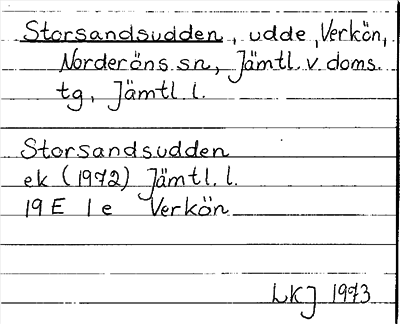 Storsandsudden, udde, Verkön,
Norderöns sn, Jämtl. v. doms.
tg, Jämtl. l.
Storsandsudden
ek (1972) Jämtl. l.
19 E 1 e Verkön
LKJ 1973